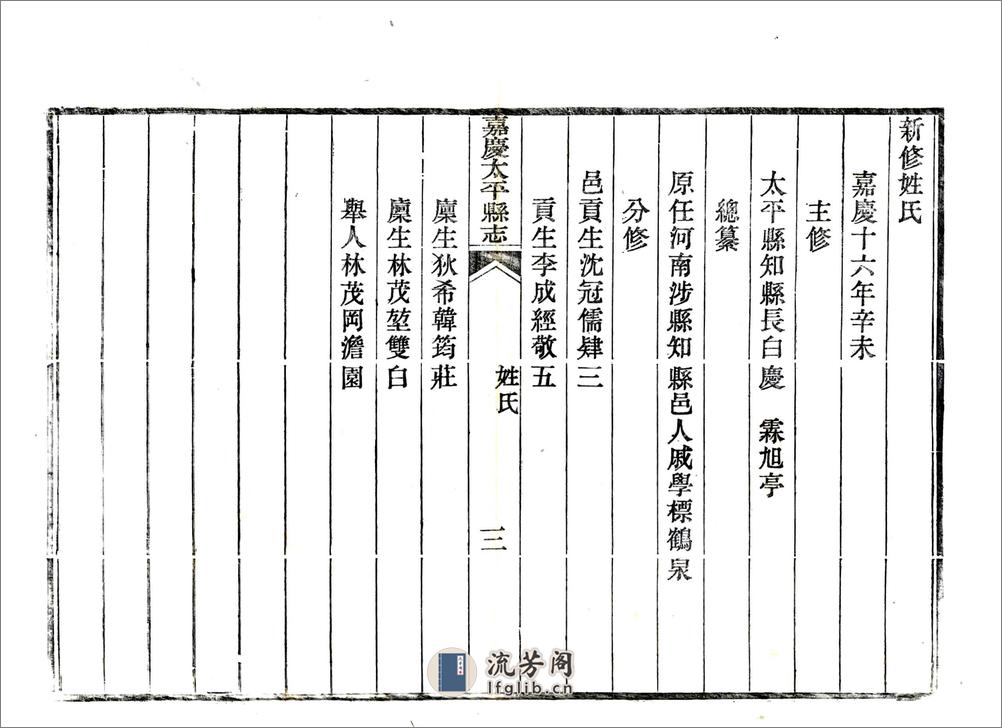 新修姓氏
嘉慶十六年辛未
主修
太平縣知縣長白慶　霖旭亭
總纂
原任河南涉縣知縣邑人戚學標鶴泉
分修
邑貢生沈冠儒肆三
貢生李成經敬五
嘉慶太平縣志
姓氏
三
廩生狄希韓筠莊
廩生林茂堃雙白
舉人林茂岡澹園
流芳阁
lfglib.cn